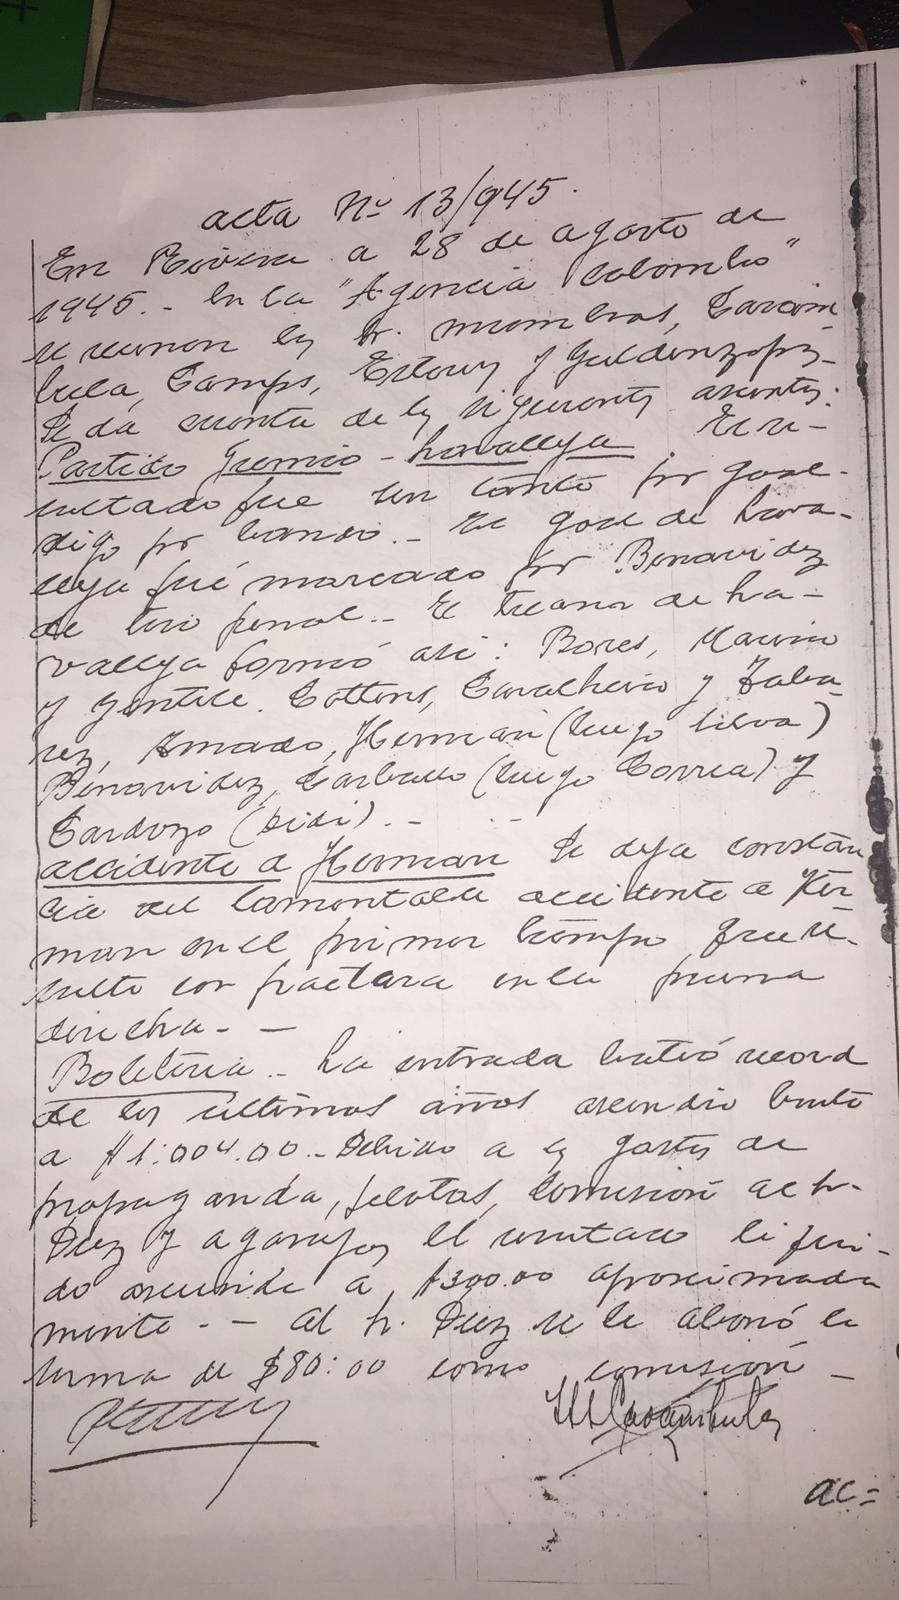 acta Nº 13/945.
En Rivera a 28 de agosto de
1945.- En la "Agencia Colombo"
se reunen los Sr. miembros, Caram-
bula, Camps, Estevez y
Se da cuenta de los siguientes asuntos:
Partido Gremio - Lavalleja El re-
sultado fue un tanto por goal-
digo por bando.- El goal de Lava-
lleja fué marcado por Benavidez
de tiro penal.- El team de La-
valleja formó asi: Bores, Marino
y Gentile. Cottens, Cavalheiro y Taba-
rez, Amado, Herman (luego Silva)
Benavidez, Carballo (luego Correa) y
Cardozo (Didi).-
accidente a Herman Se deja constan
cia del lamentable accidente a Her-
man en el primer tiempo que re-
sulto con fractura en la pierna
derecha.-
Boleteria.- La entrada batió record
de los ultimos años ascendio bruto
a $1:004.00.- Debido a los gastos de
propaganda, pelotas, comision al Sr.
Diez y agasajos el resultado liqui-
do asciende a $300.00 aproximada
mente.- Al Sr. Diez se le abonó la
suma de $80:00 como comisión -
ac=